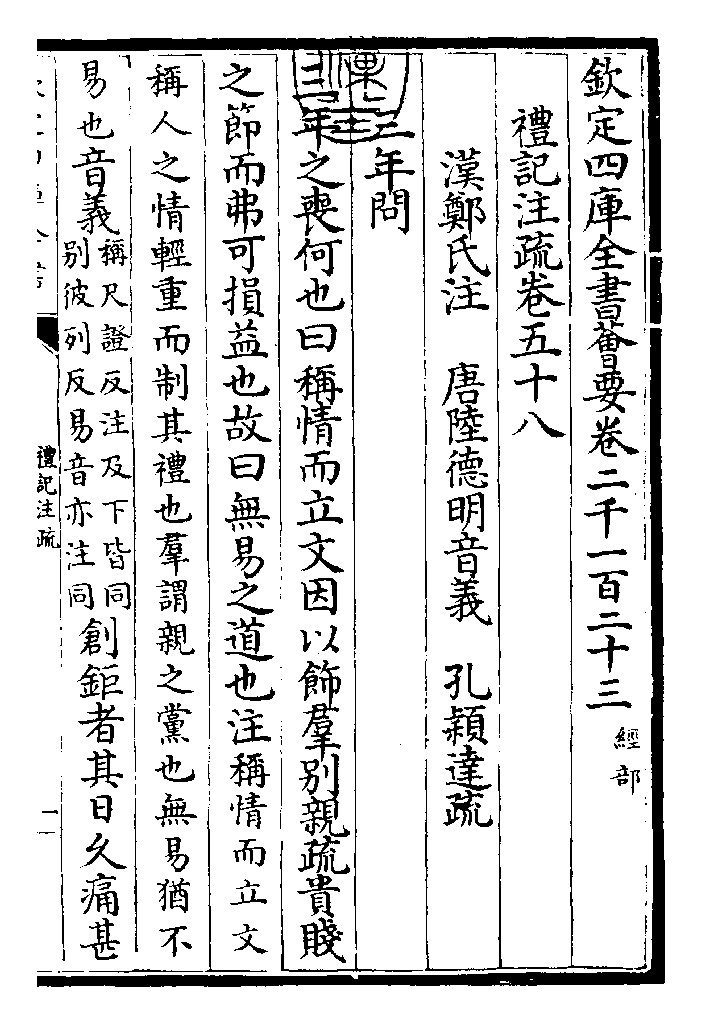 欽定四庫全書薈要卷二千一百二十三 經部
禮記注疏卷五十八
漢鄭氏注 唐陸德明音義 孔穎達疏
三年問
三年之喪何也曰稱情而立文因以飾羣別親疏貴賤
之節而弗可損益也故曰無易之道也注稱情而立文
稱人之情輕重而制其禮也羣謂親之黨也無易猶不
易也音義稱尺證反注及下皆同別彼列反易音亦注同創鉅者其日久痛甚
禮記注疏
一